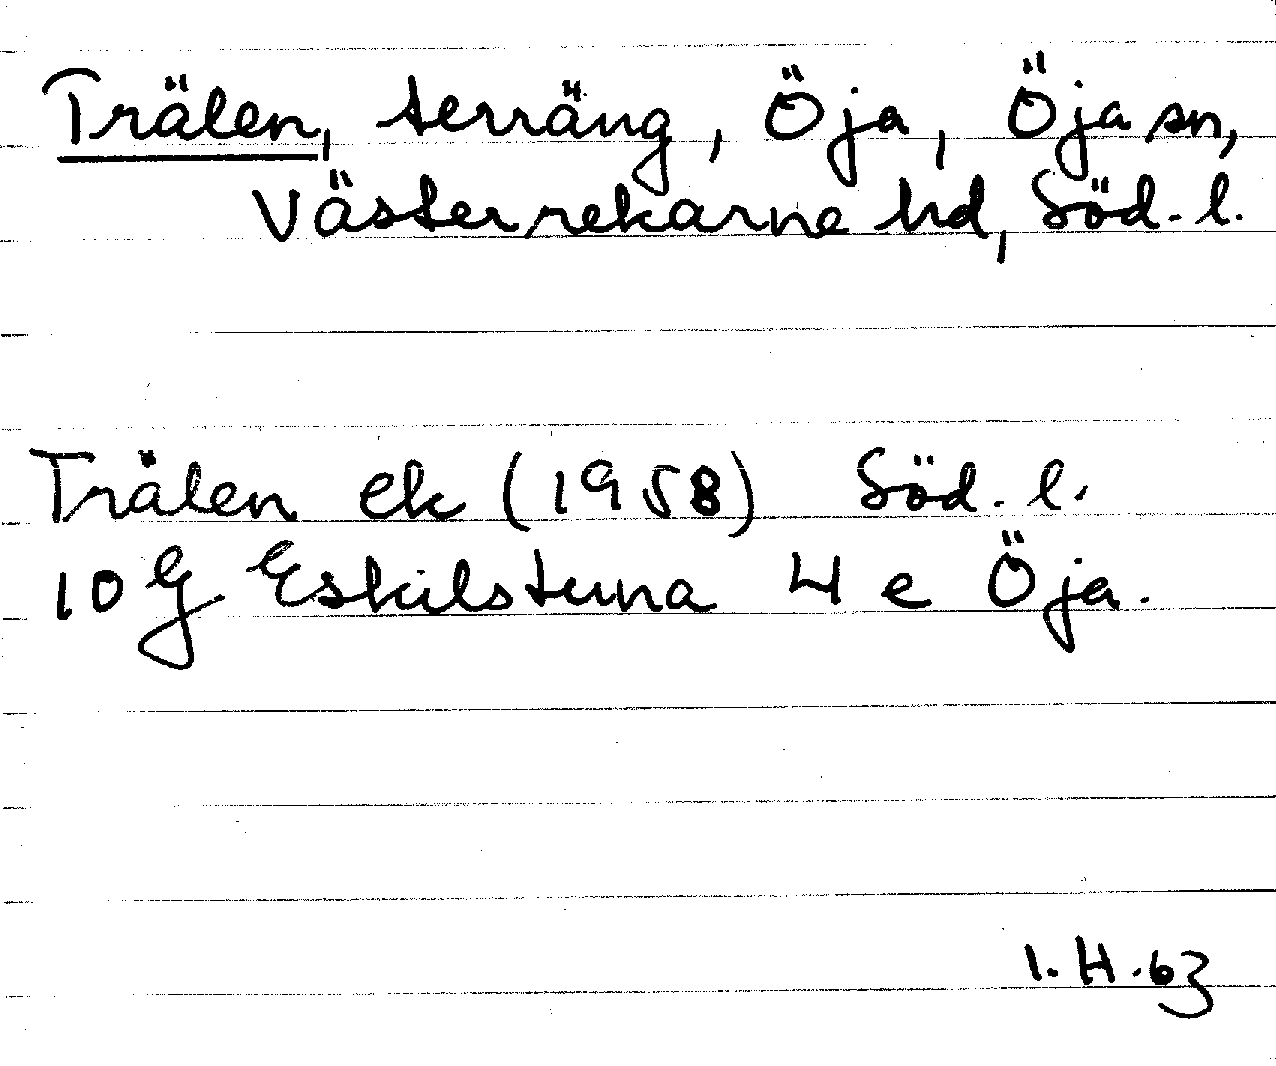 Trälen, terräng, Öja, Öja sn,
Västerrekarne hd, Söd. l.
Trälen ek (1958) Söd. l.
10 G Eskilstuna 4 e Öja.
I. H. 63